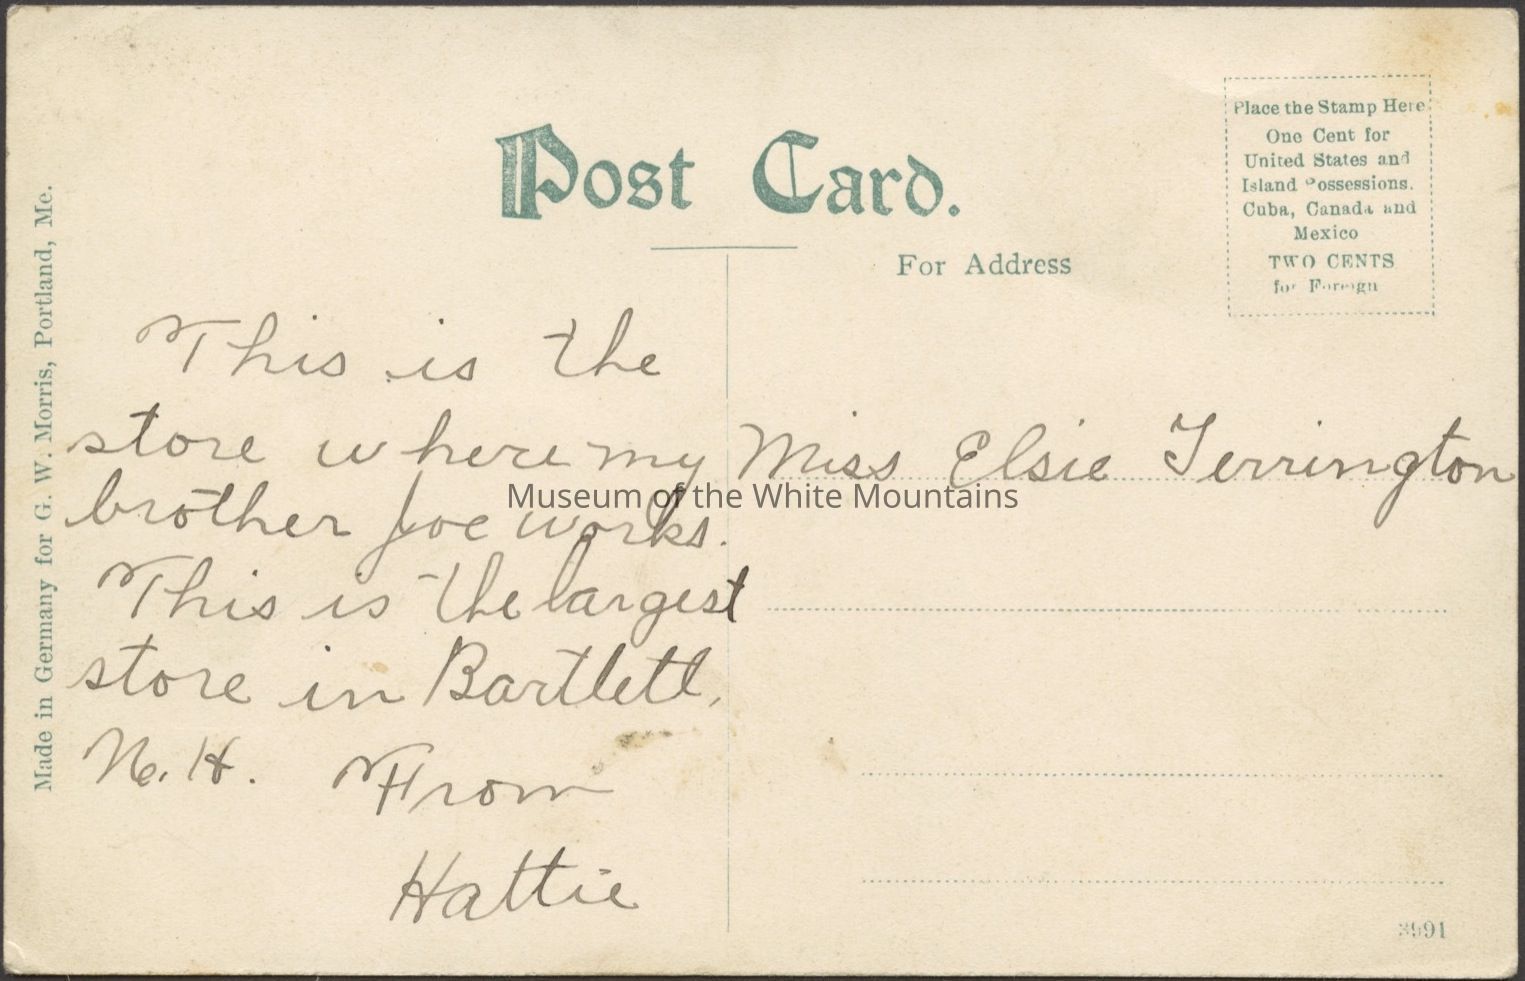 Post Card.
For Address
Place the Stamp Here
One Cent for
United States and
Island Possessions.
Cuba, Canada and
Mexico
TWO CENTS
for Foreign
Made in Germany for G. W. Morris, Portland, Me.
This is the
store where my
brother Joe works.
This is the largest
store in Bartlett,
N. H. From
Hattie
Miss Elsie Terrington
Museum of the White Mountains
3991